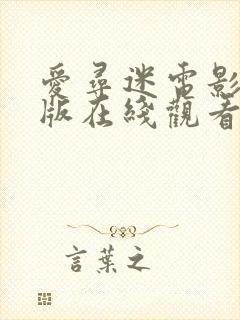 愛尋迷電影
版在綫觀看
言葉之